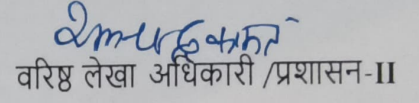 वरिष्ठ लेखा अधिकारी /प्रशासन-II